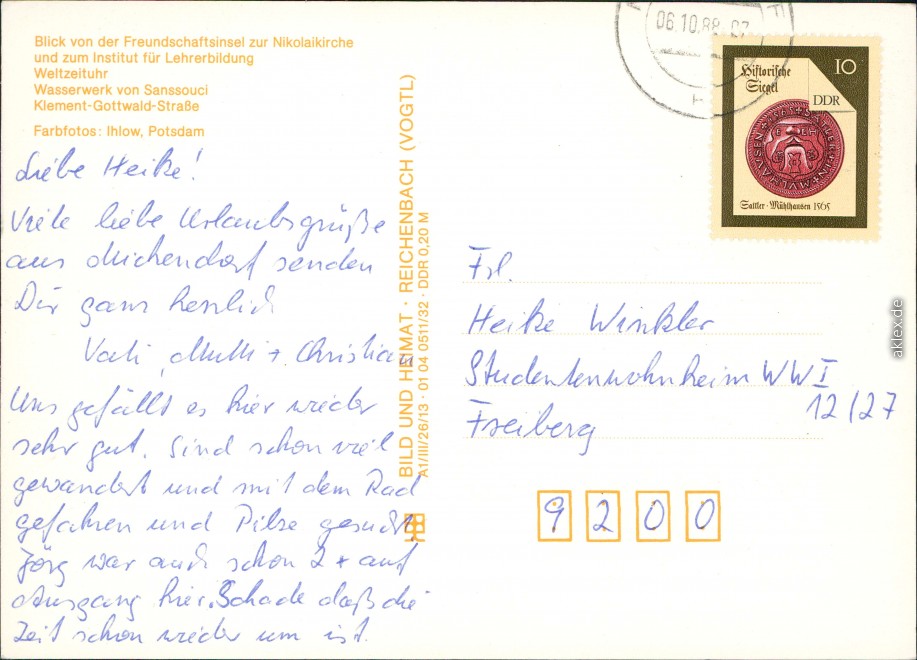 Blick von der Freundschaftsinsel zur Nikolaikirche
und zum Institut für Lehrerbildung
Weltzeituhr
Wasserwerk von Sanssouci
Klement-Gottwald-Straße
Farbfotos: Ihlow, Potsdam
Liebe Heike!
Viele liebe Urlaubsgrüße
aus Michendorf senden
Dir ganz herzlich
Vati, Mutti + Christian
Uns gefällt es hier wieder
sehr gut. Sind schon viel
gewandert und mit dem Rad
gefahren und Pilze gesucht.
Jörg war auch schon 2 x auf
Ausgang hier. Schade daß die
Zeit schon wieder um ist.
BILD UND HEIMAT · REICHENBACH (VOGTL)
A1/III/26/13 · 01 04 0511/32 · DDR 0,20 M
06.10.88-07
Historische
Siegel
10
DDR
Sattler · Mühlhausen 1565
Frl.
Heike Winkler
Studentenwohnheim WW I
12/27
Freiberg
9200
aklex.de